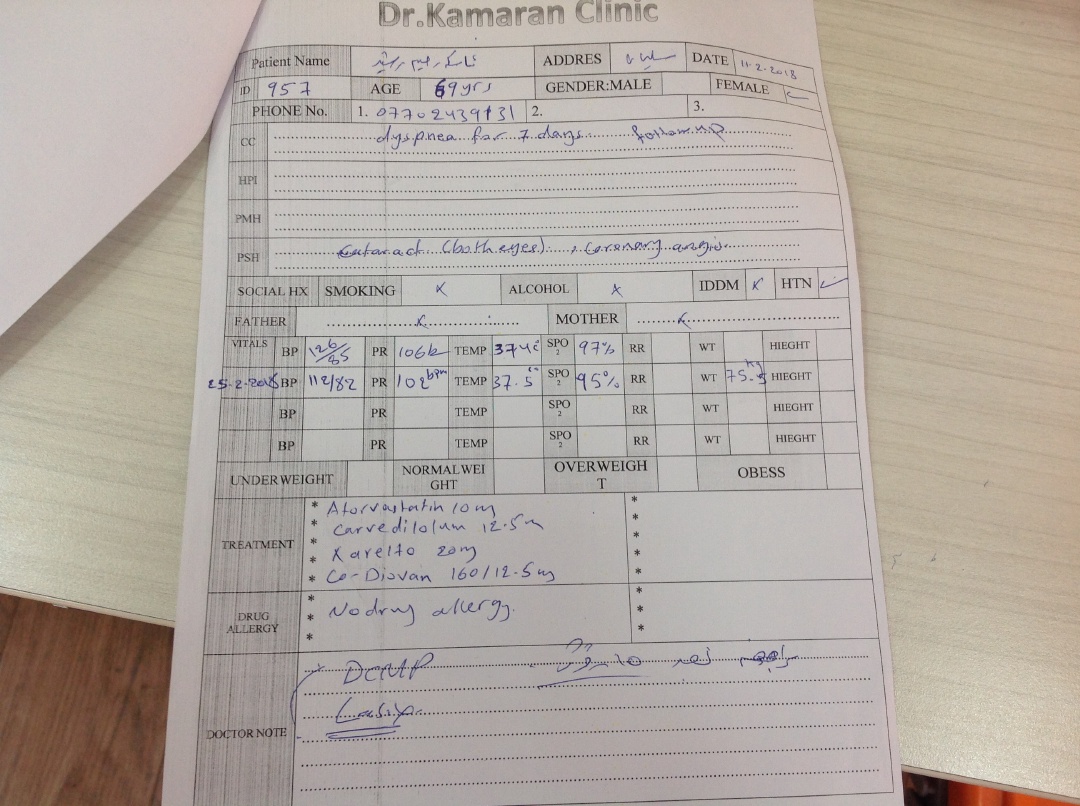 Dr.Kamaran Clinic
Patient Name ADDRES DATE 11-2-2018
ID 957 AGE 69yrs GENDER:MALE FEMALE ✓
PHONE No. 1. 07702439131 2. 3.
CC dyspnea for 7 days follow up
HPI
PMH
PSH Cataract (both eyes) , Coronary angio
SOCIAL HX SMOKING x ALCOHOL x IDDM x HTN ✓
FATHER x MOTHER x
VITALS BP 126/85 PR 106b TEMP 37.4c° SPO2 97% RR WT HIEGHT
25-2-2018 BP 112/82 PR 102bpm TEMP 37.5c° SPO2 95% RR WT 75.5kg HIEGHT
BP PR TEMP SPO2 RR WT HIEGHT
BP PR TEMP SPO2 RR WT HIEGHT
UNDERWEIGHT NORMALWEIGHT OVERWEIGHT OBESS
TREATMENT
* Atorvastatin 10m *
* Carvedilolum 12.5m *
* Xarelto 20m *
* Co-Diovan 160/12.5m *
DRUG ALLERGY
* No drug allergy. *
* *
* *
DOCTOR NOTE
DCMP
Lasix